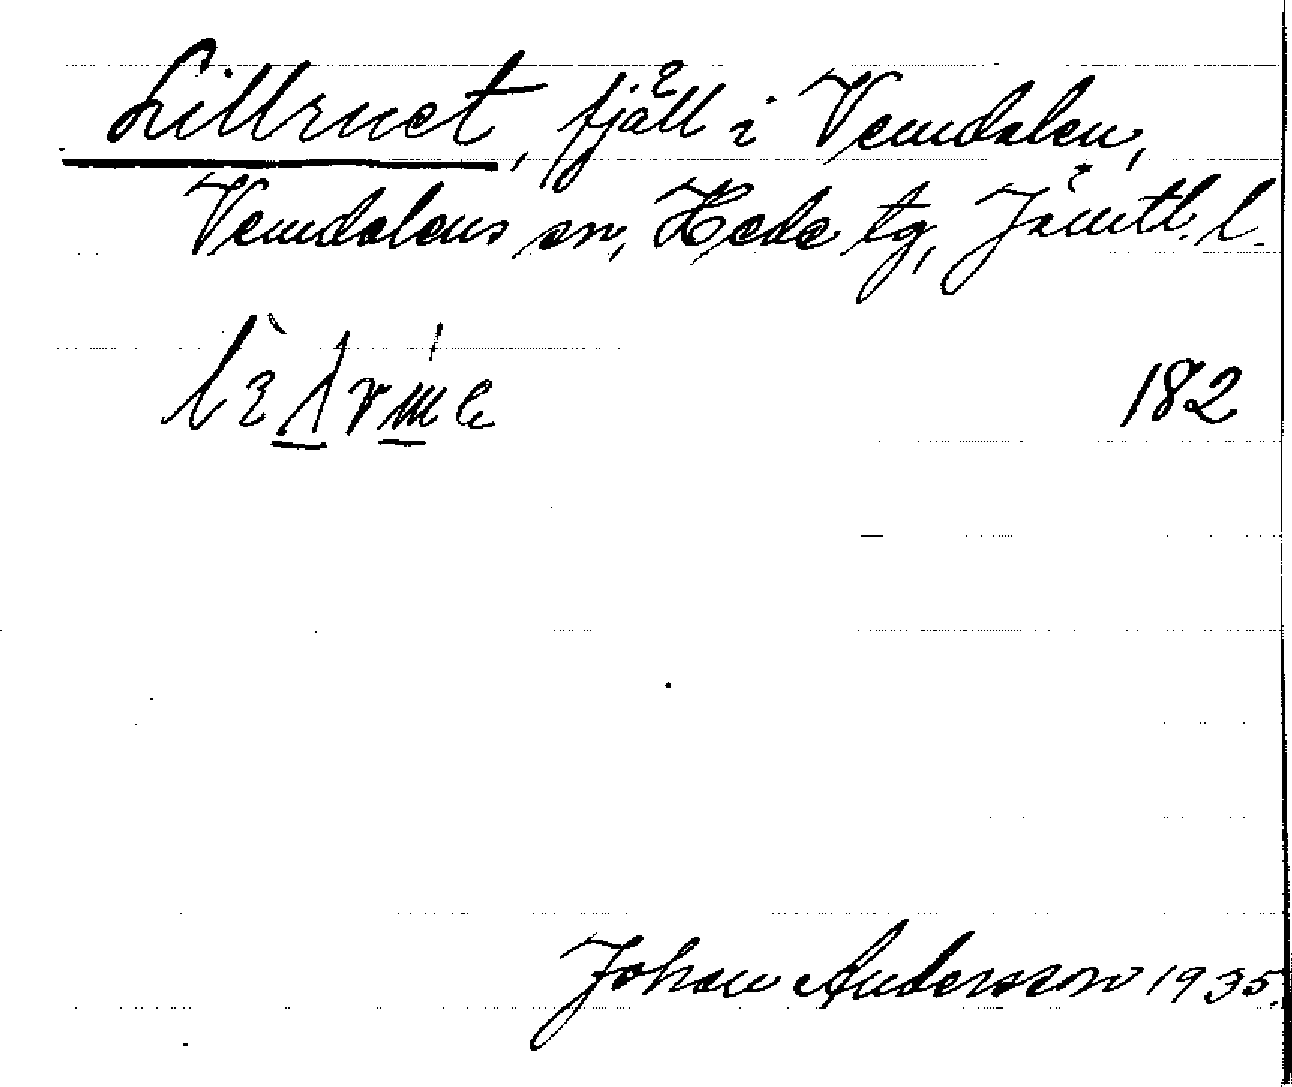 Lillruet, fjäll i Vemdalen,
Vemdalens sn, Hede tg, Jämtl. l.
182
Johan Andersson 1935.